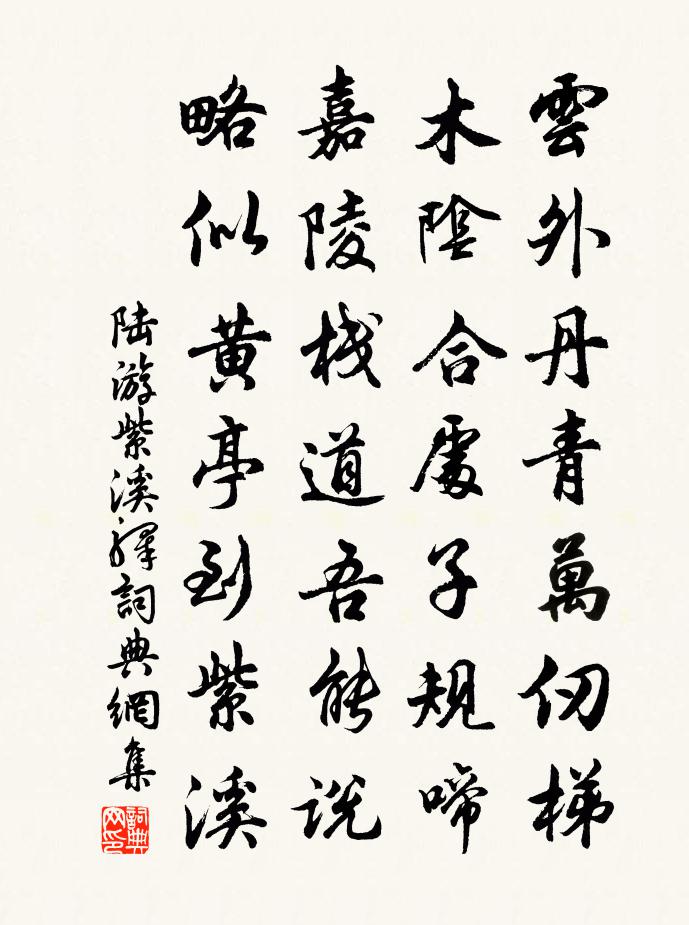 雲外丹青萬仞梯
木陰合處子規啼
嘉陵棧道吾能說
略似黃亭到紫溪
陆游紫溪驛詞典網集
詞典网印